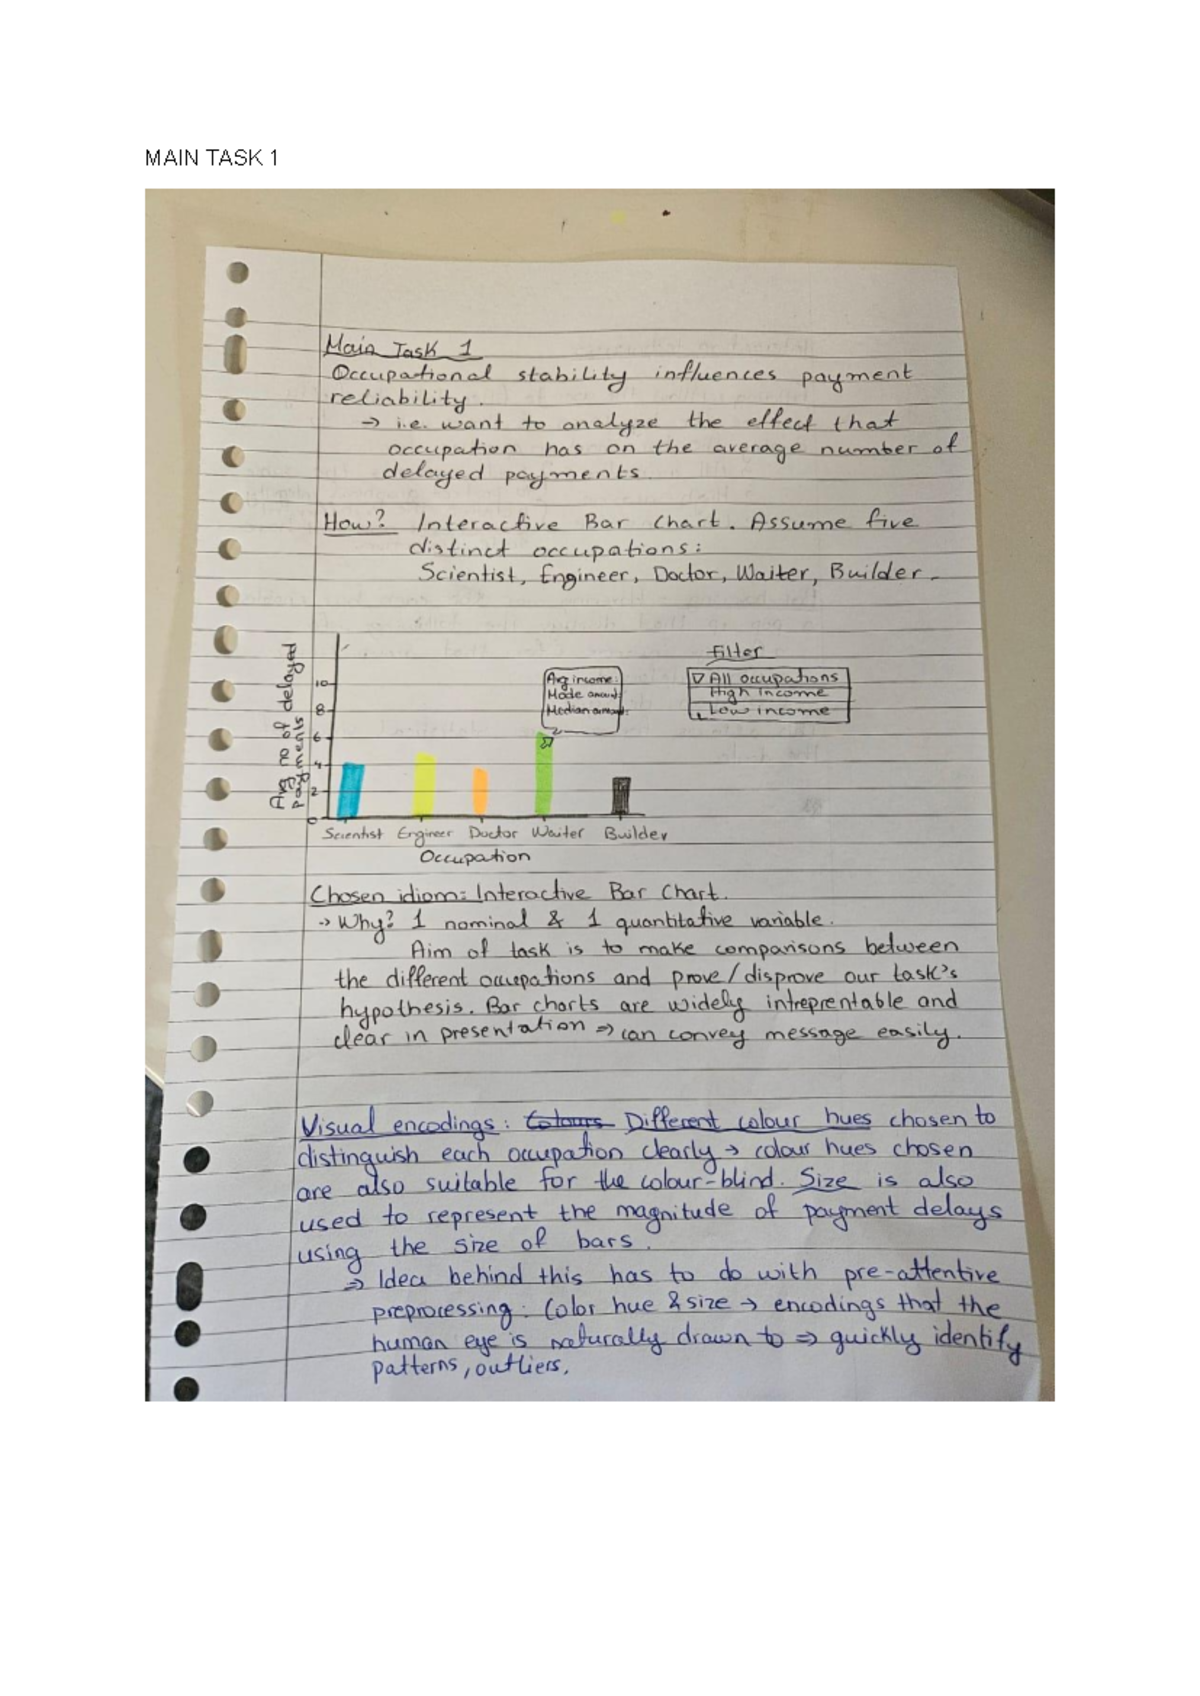 MAIN TASK 1
Main Task 1
Occupational stability influences payment
reliability.
→ i.e. want to analyze the effect that
occupation has on the average number of
delayed payments.
How? Interactive Bar Chart. Assume five
distinct occupations:
Scientist, Engineer, Doctor, Waiter, Builder.
Avg no of delayed
payments
10
8
6
4
2
0
Avg income:
Mode amount:
Median amount:
Filter
All occupations
High income
Low income
Scientist Engineer Doctor Waiter Builder
Occupation
Chosen idiom: Interactive Bar Chart.
→ Why? 1 nominal & 1 quantitative variable.
Aim of task is to make comparisons between
the different occupations and prove/disprove our task's
hypothesis. Bar charts are widely intreprentable and
clear in presentation ⇒ can convey message easily.
Visual encodings: Colours Different colour hues chosen to
distinguish each occupation clearly → colour hues chosen
are also suitable for the colour-blind. Size is also
used to represent the magnitude of payment delays
using the size of bars.
⇒ Idea behind this has to do with pre-attentive
preprocessing: Color hue & size → encodings that the
human eye is naturally drawn to ⇒ quickly identify
patterns, outliers.